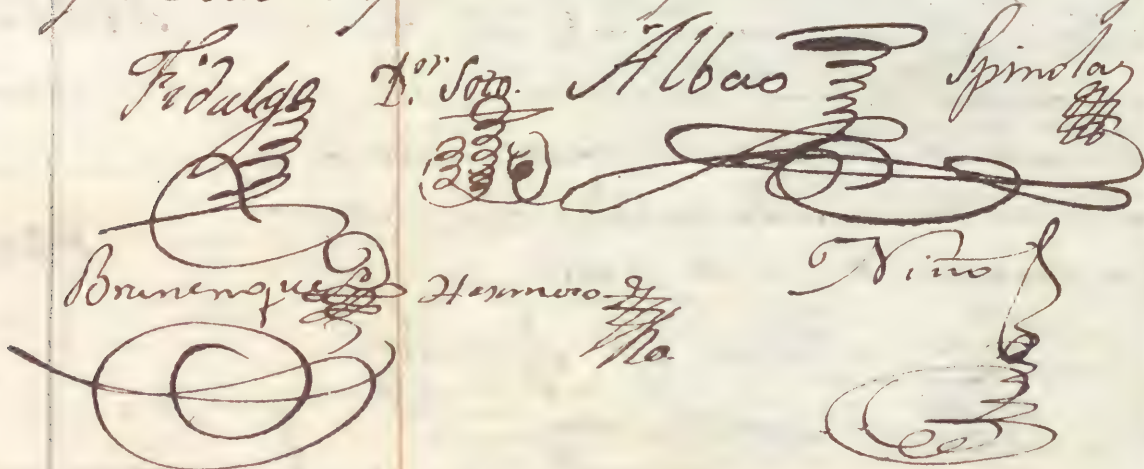 Fidalgo D.or Soto. Albao Spinola
Brunenque Niño